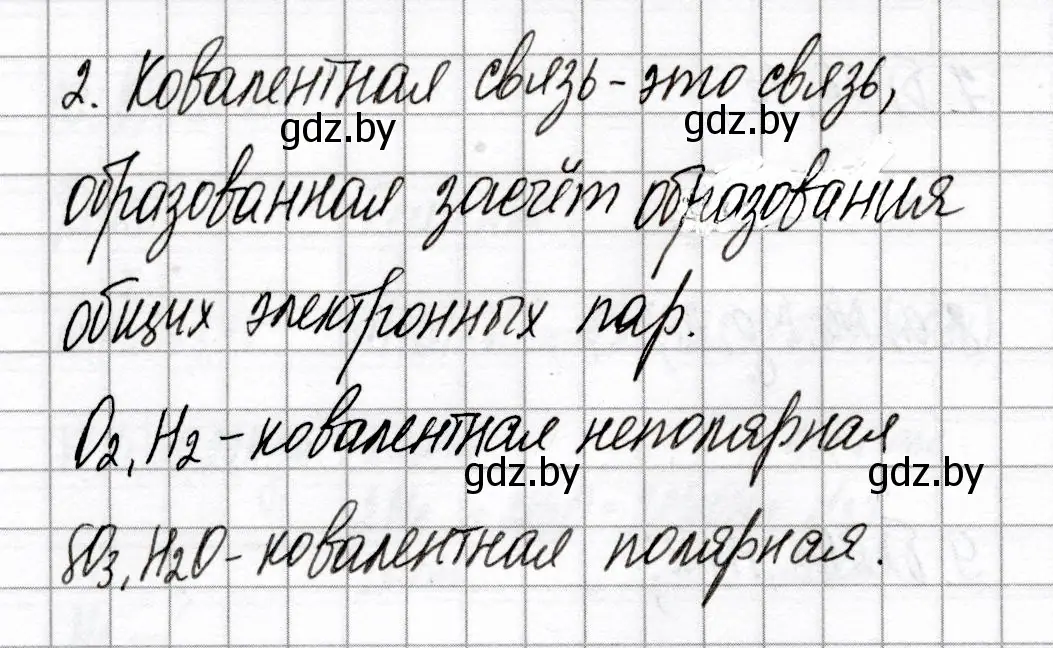 2. Ковалентная связь - это связь,
gdz.by
gdz.by
образованная засчёт образования
общих электронных пар.
O2, H2 - ковалентная неполярная
gdz.by
gdz.by
SO3, H2O - ковалентная полярная.